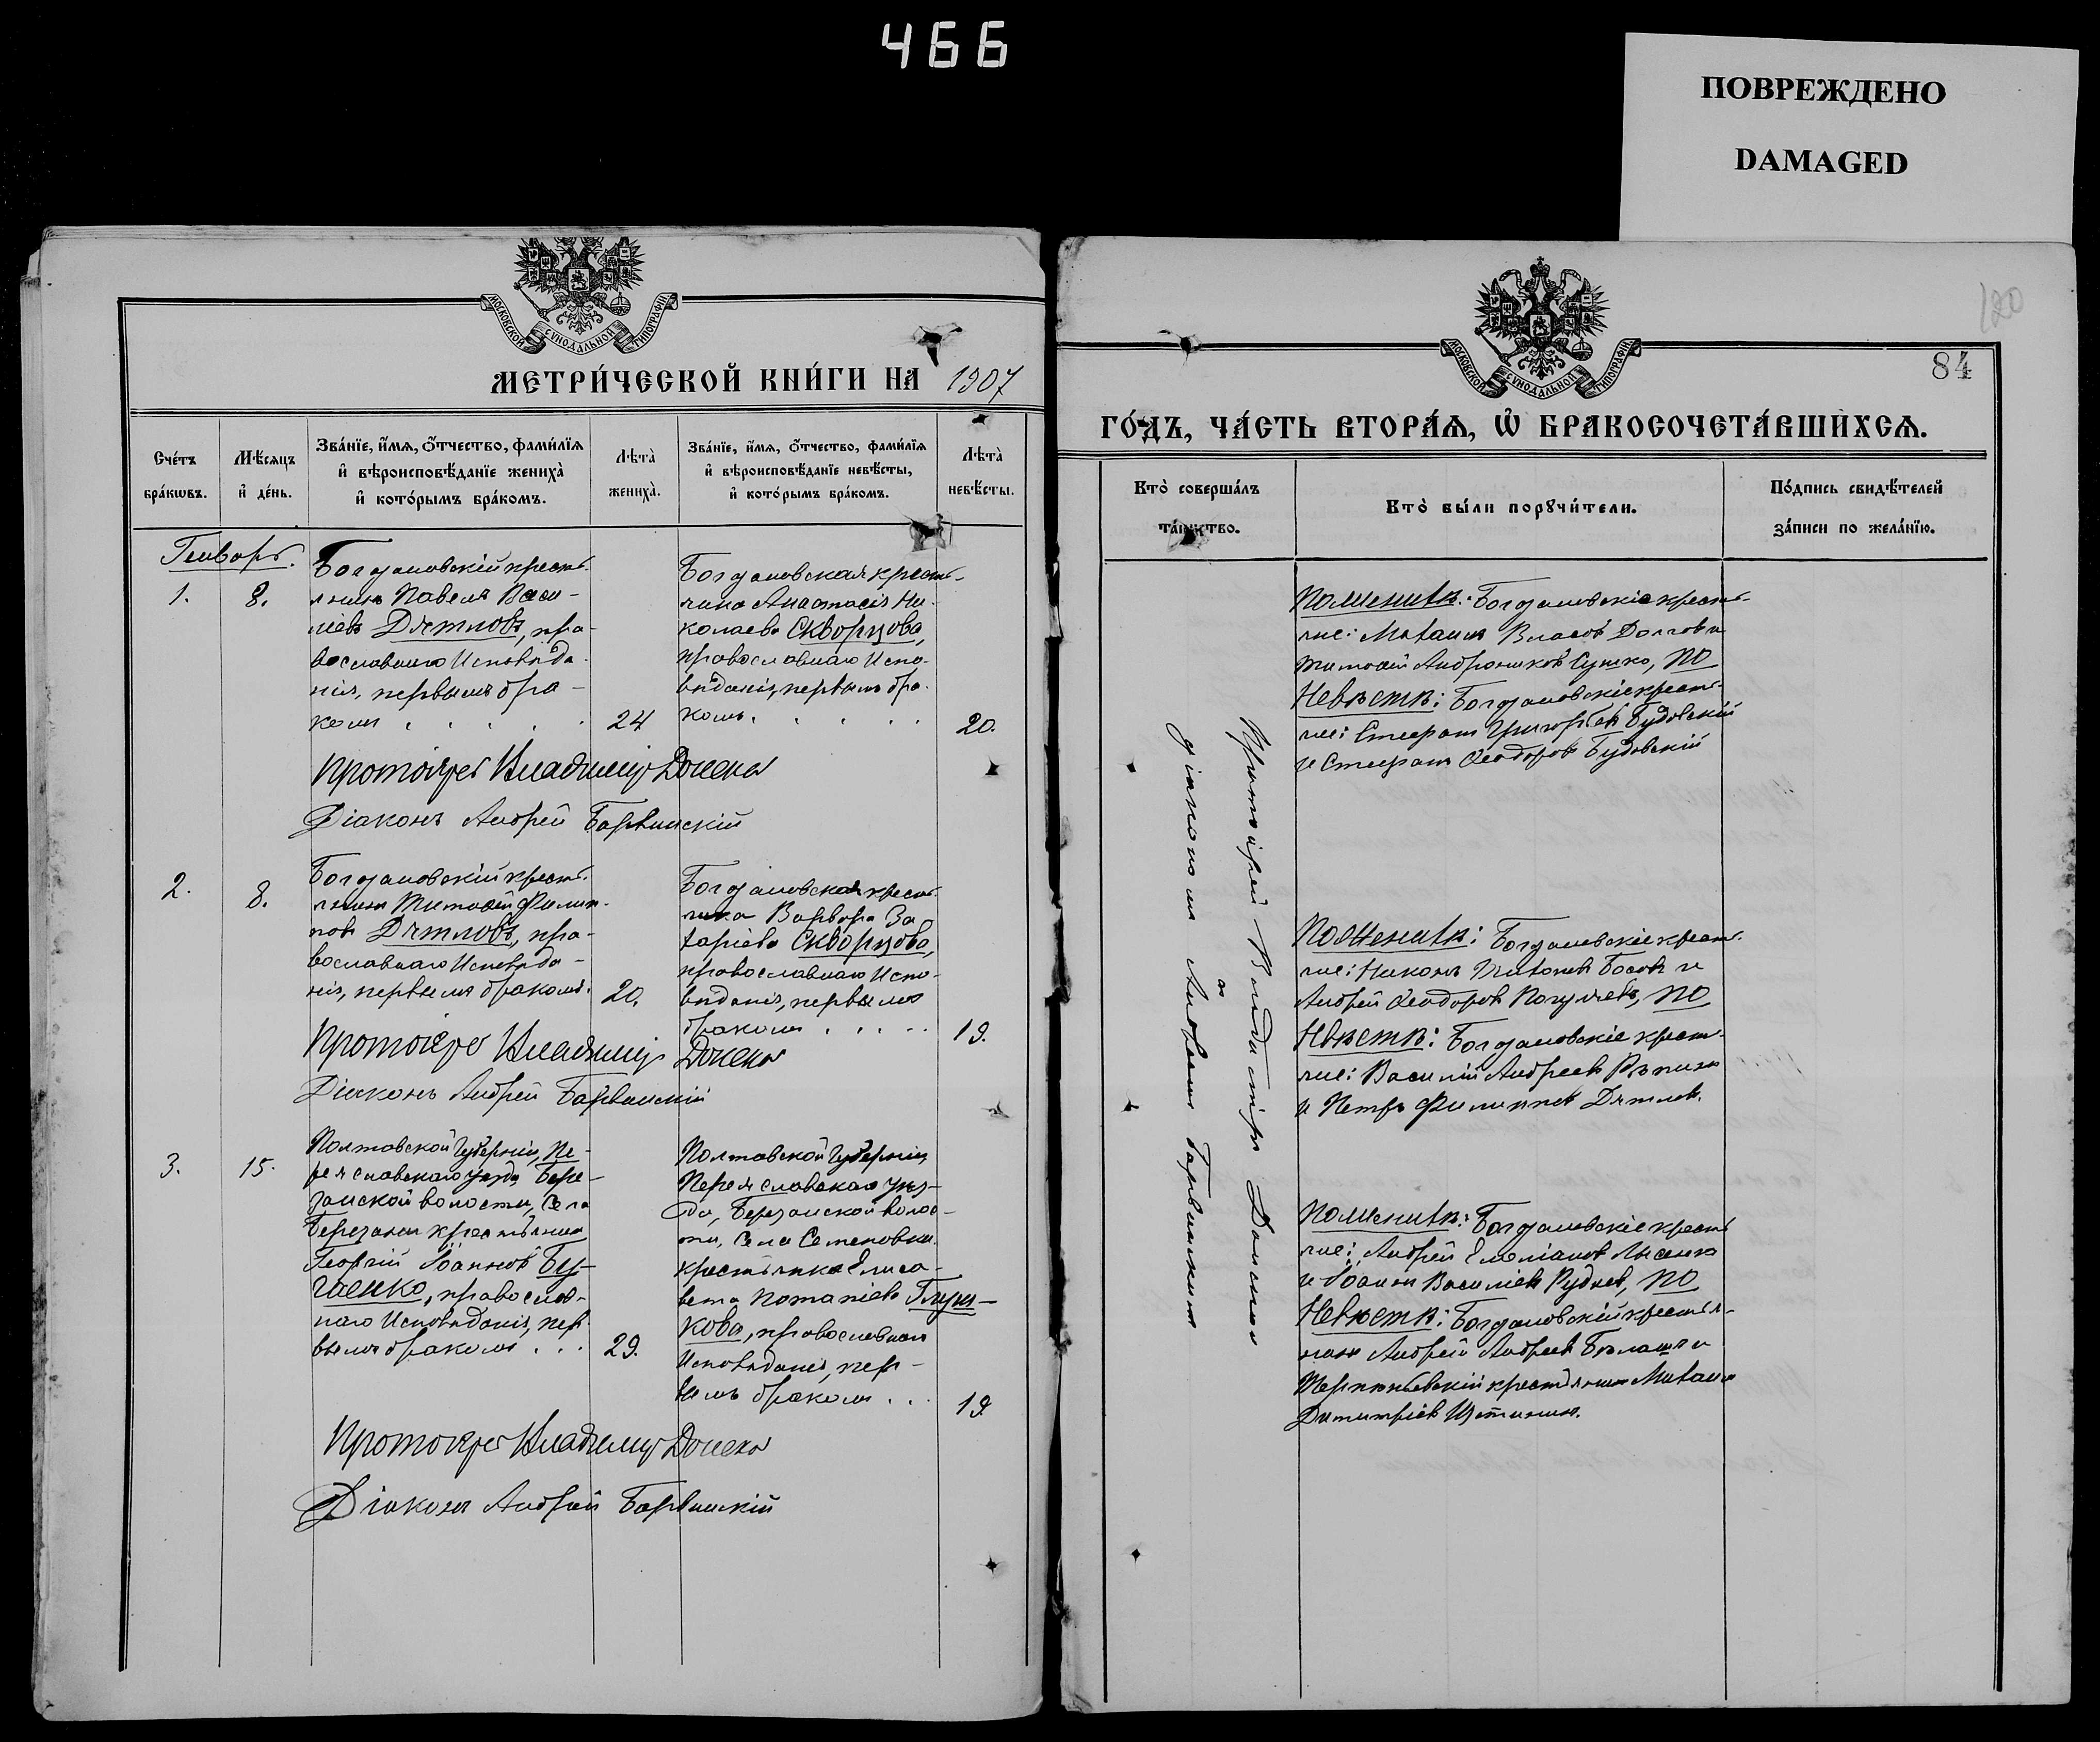 466
ПОВРЕЖДЕНО
DAMAGED
МОСКОВСКОЙ СѴНОДАЛЬНОЙ ТИПОГРАФІИ
МЕТРИ́ЧЕСКОЙ КНИ́ГИ НА 1907
Сче́тъ бра́кѡвъ.
Мѣ́сяцъ и҆ де́нь.
Зва́нїе, и҆́мѧ, ѻ҆́тчество, фами́лїѧ
и҆ вѣроисповѣ́данїе жениха̀
и҆ кото́рымъ бра́комъ.
Лѣта̀ жениха̀.
Зва́нїе, и҆́мѧ, ѻ҆́тчество, фами́лїѧ
и҆ вѣроисповѣ́данїе невѣ́сты,
и҆ кото́рымъ бра́комъ.
Лѣта̀ невѣ́сты.
Генварь.
1.
8.
Богдановскій кресть-
янинъ Павелъ Васи-
льевъ Дятловъ, пра-
вославнаго исповѣда-
нія, первымъ бра-
комъ . . . . .
24
Богдановская кресть-
янка Анастасія Ни-
колаева Скворцова,
православнаго испо-
вѣданія, первымъ бра-
комъ. . . . .
20.
Протоіерей Владиміръ
Діаконъ Андрей Барвинскій
2.
8.
Богдановскій кресть-
янинъ Тимофей Филип-
повъ Дятловъ, пра-
вославнаго исповѣда-
нія, первымъ бракомъ.
20.
Богдановская кресть-
янка Варвара За-
харіева Скворцова,
православнаго испо-
вѣданія, первымъ
бракомъ . . . . .
19.
Протоіерей Владиміръ
Діаконъ Андрей Барвинскій
3.
15.
Полтавской губерніи, Пе-
реяславскаго уѣзда, Бере-
занской волости, села
Березани крестьянинъ
Георгій Іоанновъ
православ-
наго исповѣданія, пер-
вымъ бракомъ . . .
29.
Полтавской губерніи,
Переяславскаго уѣз-
да, Березанской волос-
ти, села Семеновки
крестьянка Елиса-
вета Потапіева Глуш-
кова, православнаго
исповѣданія, пер-
вымъ бракомъ . . .
19.
Протоіерей Владиміръ
Діаконъ Андрей Барвинскій
120
84
МОСКОВСКОЙ СѴНОДАЛЬНОЙ ТИПОГРАФІИ
ГО́ДЪ, ЧА́СТЬ ВТОРА́Ѧ, Ѡ҆ БРАКОСОЧЕТА́ВШИХСѦ.
Кто̀ соверша́лъ
та́инство.
Кто̀ бы́ли порꙋчи́тели.
По́дпись свидѣ́телей
за́писи по жела́нїю.
Протоіерей Владиміръ
съ діакономъ Андреемъ Барвинскимъ
По женихѣ: Богдановскіе кресть-
яне: Михаилъ Власовъ Долговъ и
Тимофей Андрониковъ Сушко, по
Невѣстѣ: Богдановскіе кресть-
яне: Стефанъ Григорьевъ Будовскій
и Стефанъ Ѳеодоровъ Будовскій
По женихѣ: Богдановскіе кресть-
яне: Никонъ Басовъ и
Андрей Ѳеодоровъ по
Невѣстѣ: Богдановскіе кресть-
яне: Василій Андреевъ Рѣпинъ
и Петръ Филипповъ Дятловъ.
По женихѣ: Богдановскіе кресть-
яне: Андрей Емеліановъ Лысенко
и Іоаннъ Васильевъ Руднев, по
Невѣстѣ: Богдановскій крестья-
нинъ Андрей Андреевъ и
Терпѣньевскій крестьянинъ Михаилъ
Димитріевъ